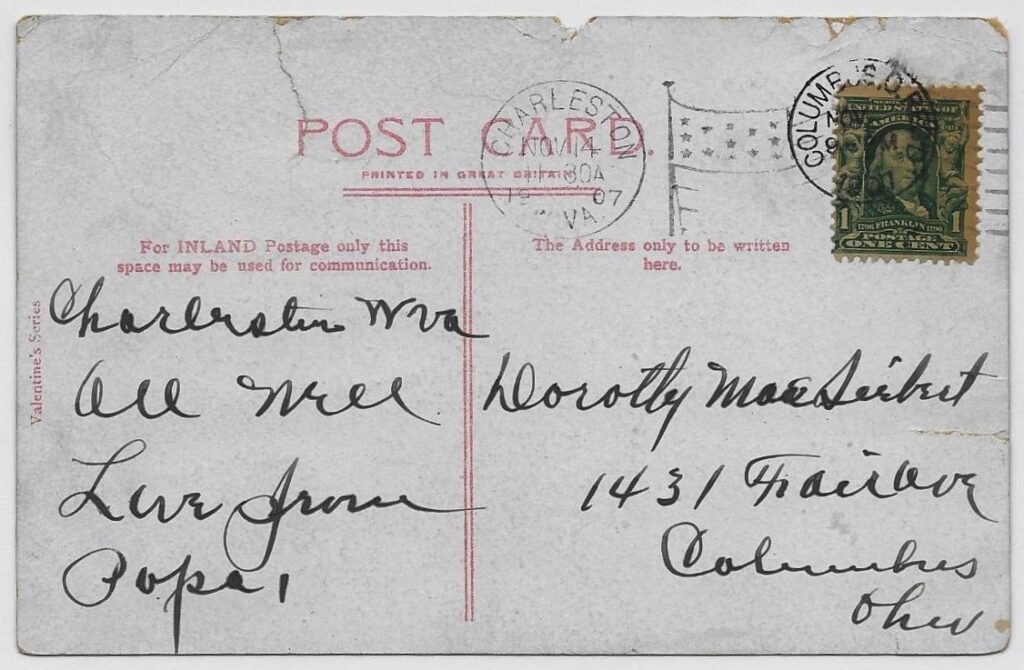 POST CARD.
PRINTED IN GREAT BRITAIN
CHARLESTON
NOV 14
30A
1907
W. VA.
COLUMBUS, O.
NOV
1907
SERIES
UNITED STATES OF
AMERICA
1 1706 FRANKLIN 1790 1
POSTAGE
ONE CENT
For INLAND Postage only this
space may be used for communication.
The Address only to be written
here.
Valentine's Series
Charleston Wva
All Well
Love from
Papa,
Dorothy Mae Siebert
1431 Fair ave
Columbus
Ohio